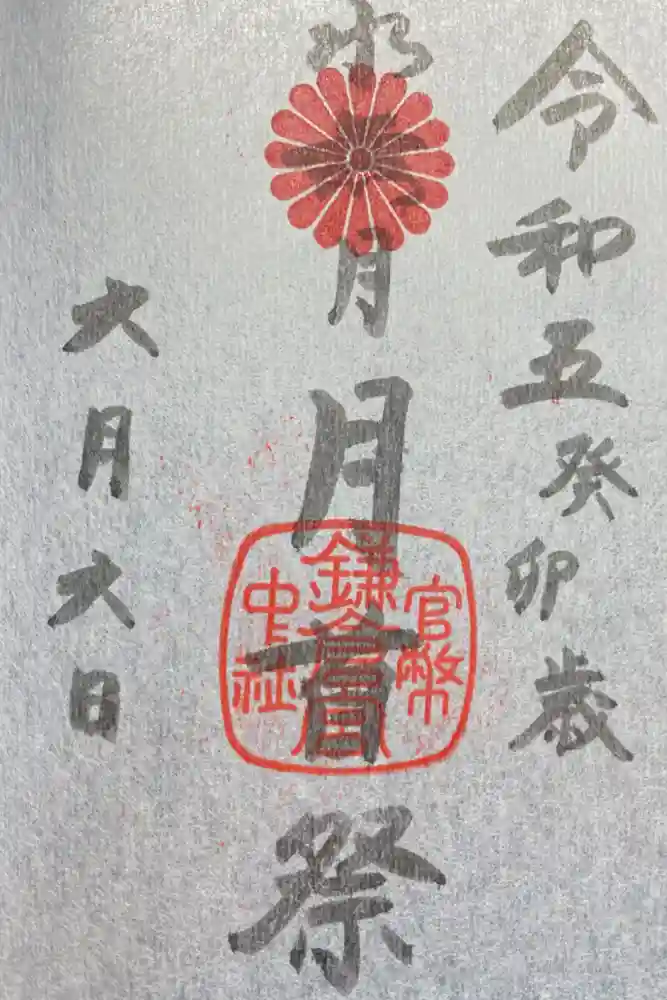 令和五癸卯歳
水無月
月首祭
官幣
鎌倉宮
中社
六月六日